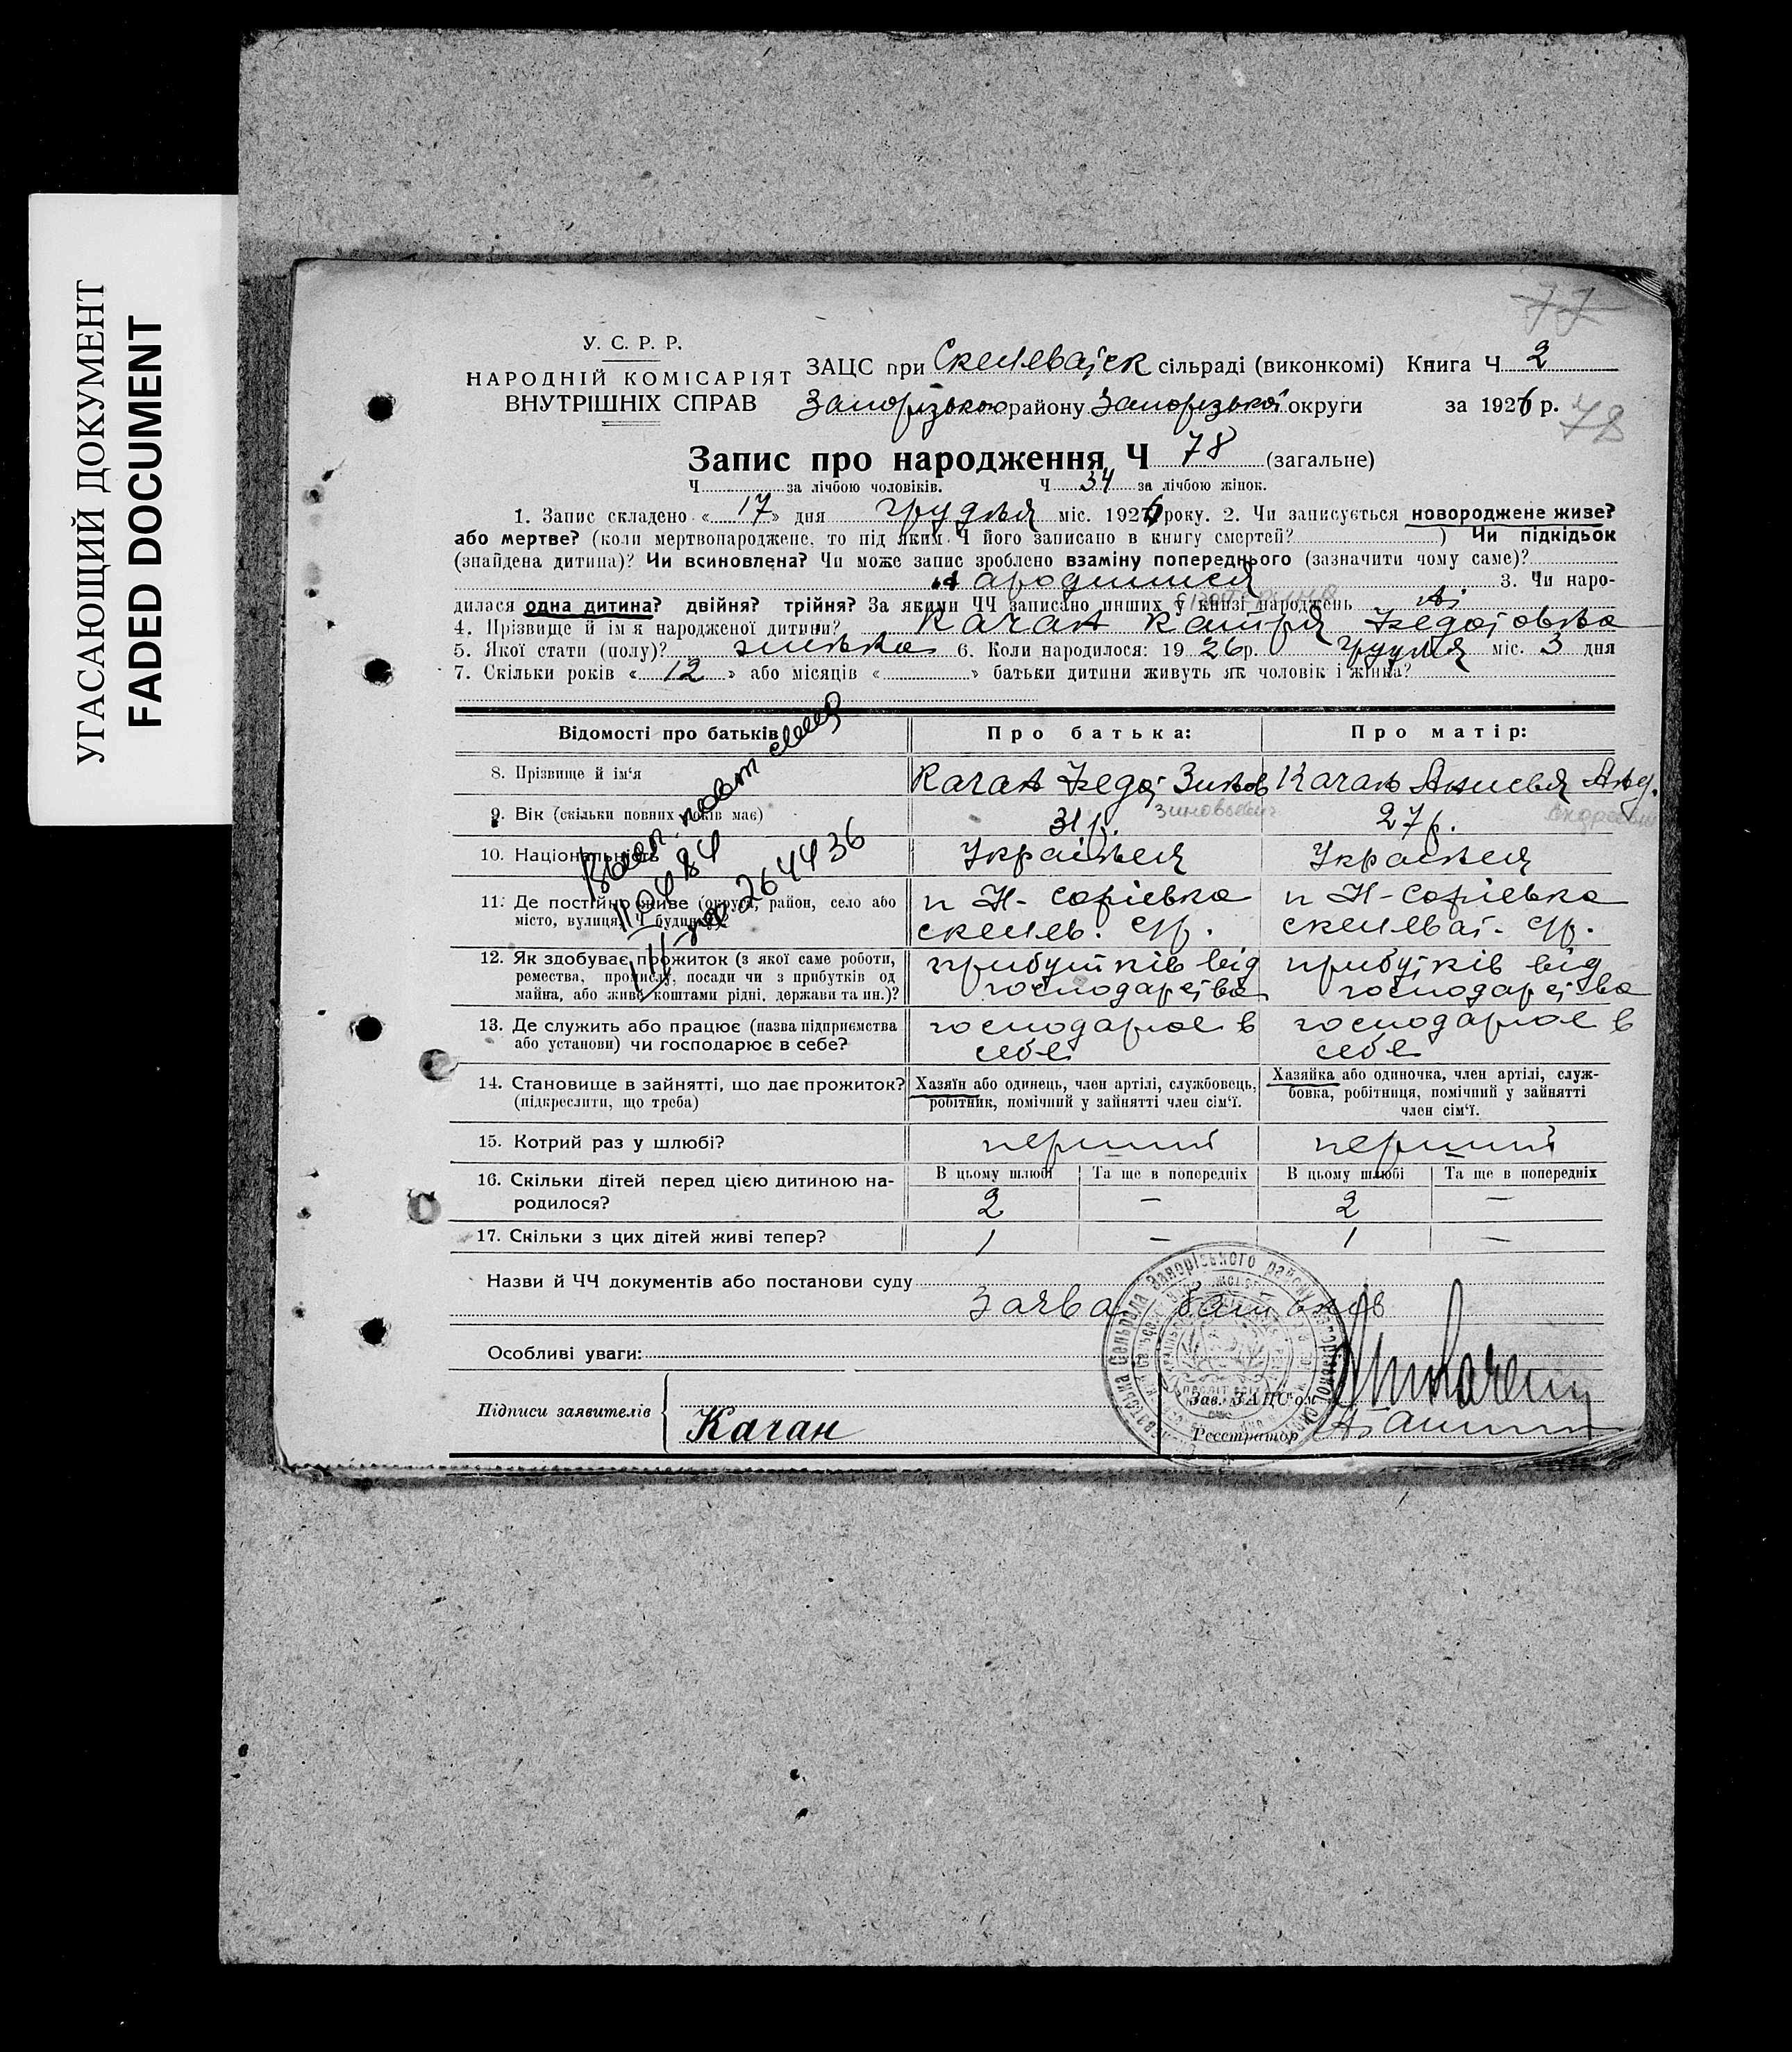 УГАСАЮЩИЙ ДОКУМЕНТ
FADED DOCUMENT
77
У. С. Р. Р.
НАРОДНІЙ КОМІСАРІЯТ
ВНУТРІШНІХ СПРАВ
ЗАЦС при сільраді (виконкомі) Книга Ч 2
Запорізького району Запорізької округи за 1926 р.
78
Запис про народження Ч 78 (загальне)
Ч за лічбою чоловіків. Ч 34 за лічбою жінок.
1. Запис складено «17» дня грудня міс. 1926 року. 2. Чи записується новороджене живе?
або мертве? (коли мертвонароджене, то під яким Ч його записано в книгу смертей? ) Чи підкідьок
(знайдена дитина)? Чи всиновлена? Чи може запис зроблено взаміну попереднього (зазначити чому саме)?
3. Чи наро-
дилася одна дитина? двійня? трійня? За якими ЧЧ записано инших у книзі народжень
4. Прізвище й ім'я народженої дитини? Качан
5. Якої стати (полу)? жінка 6. Коли народилося: 1926р. грудня міс. 3 дня
7. Скільки років «12» або місяців « » батьки дитини живуть як чоловік і жінка?
Відомості про батьків Про батька: Про матір:
8. Прізвище й ім'я Качан Федот Зинов Качан Анисья Анд.
9. Вік (скільки повних років має) 31 р. Зиновьевич 27 р.
10. Національність Українец Українец
11. Де постійно живе (округа, район, село або
місто, вулиця, Ч будинку)?
п Н-Софієвка
скелев. С/р.
п Н-Софієвка
скелеват. С/р.
12. Як здобуває прожиток (з якої саме роботи,
ремества, промислу, посади чи з прибутків од
майна, або живе коштами рідні, держави та ин.)?
прибутків від
господарства
прибутків від
господарства
13. Де служить або працює (назва підприємства
або установи) чи господарює в себе?
господарює в
себе
господарює в
себе
14. Становище в зайнятті, що дає прожиток?
(підкреслити, що треба)
Хазяїн або одинець, член артілі, службовець,
робітник, помічний у зайнятті член сім'ї.
Хазяйка або одиночка, член артілі, служ-
бовка, робітниця, помічний у зайнятті
член сім'ї.
15. Котрий раз у шлюбі? перший перший
16. Скільки дітей перед цією дитиною на-
родилося?
В цьому шлюбі Та ще в попередніх В цьому шлюбі Та ще в попередніх
2 — 2 —
17. Скільки з цих дітей живі тепер? 1 — 1 —
264436
Назви й ЧЧ документів або постанови суду
Заява батьків
Особливі уваги:
Підписи заявителів
Качан
Зав. ЗАЦС'ом
Реєстратор